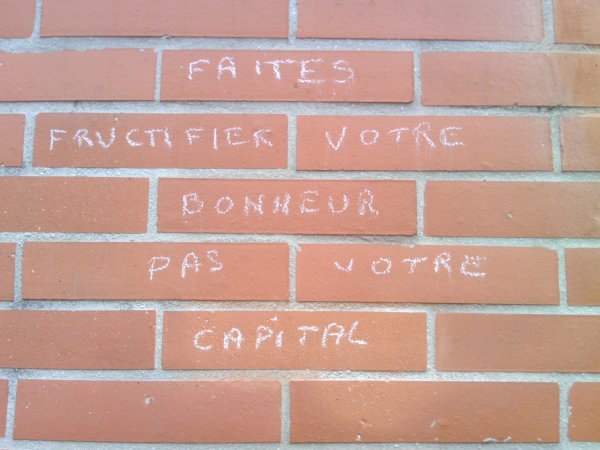 FAITES
FRUCTIFIER VOTRE
BONHEUR
PAS VOTRE
CAPITAL